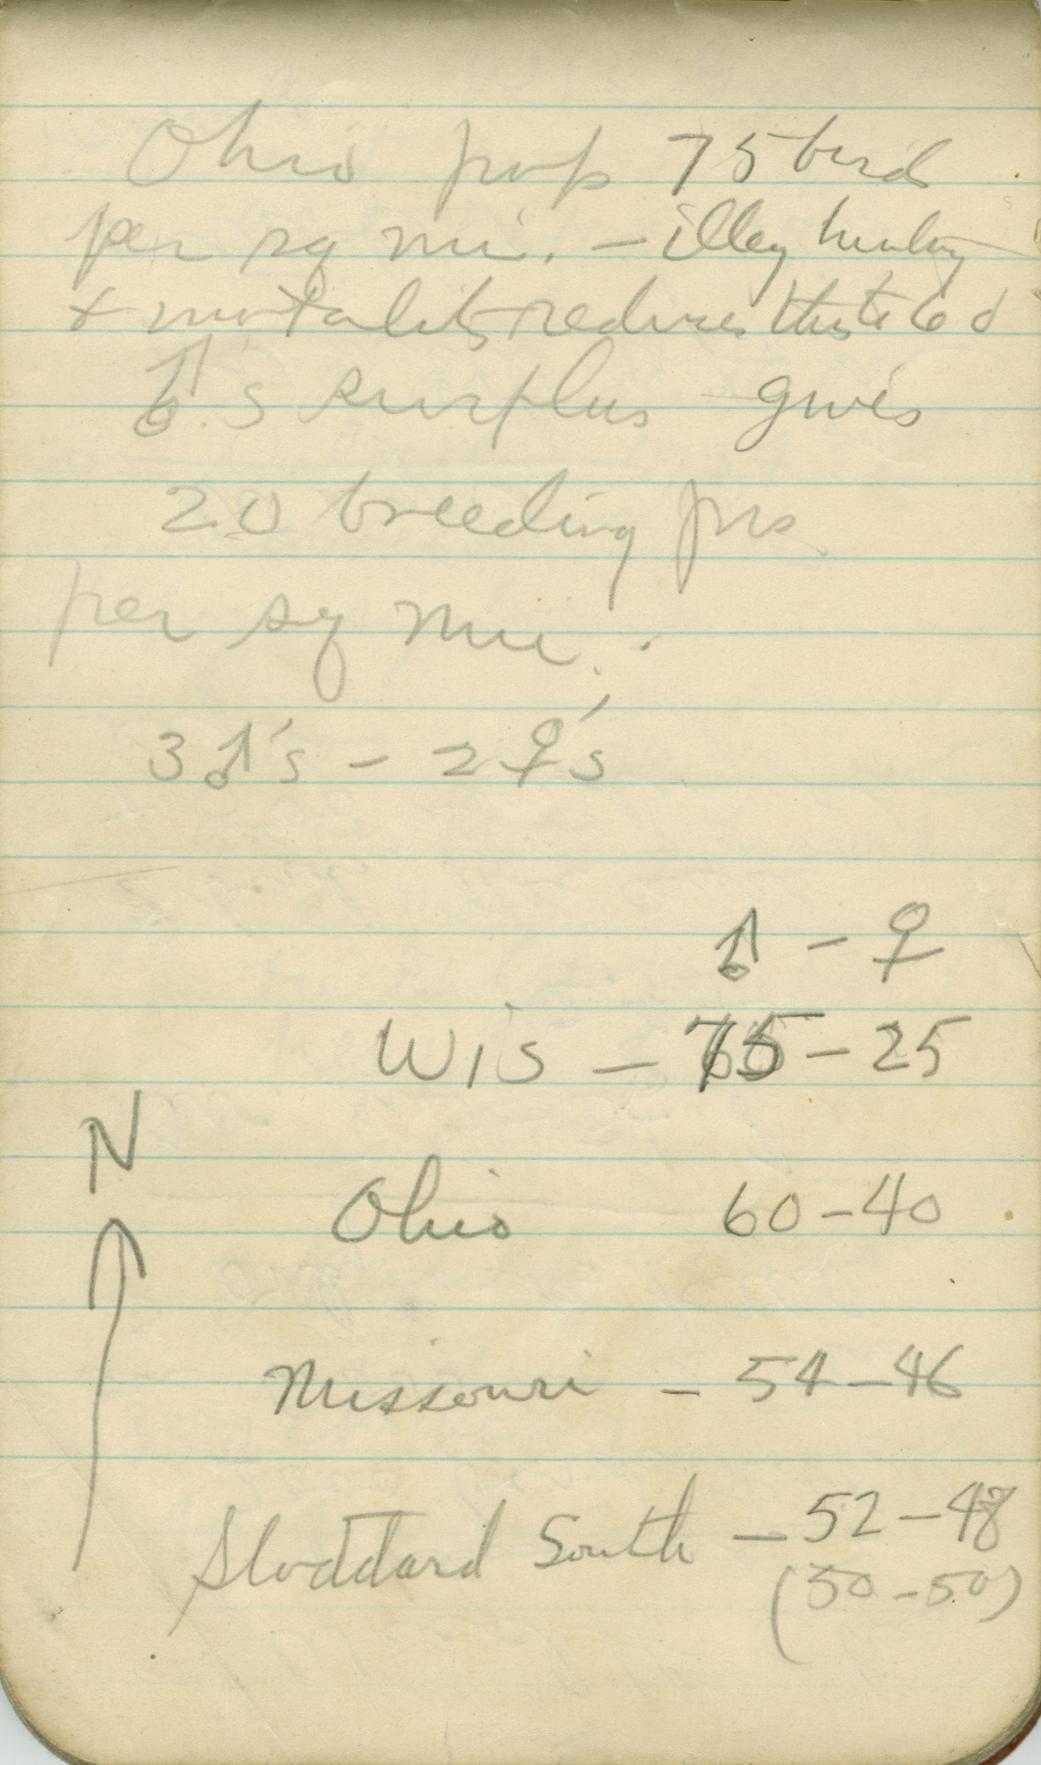 Ohio pop 75 birds
per sq mi. – illeg hunting
& mortality reduces this to 60
♂'s surplus gives
20 breeding prs
per sq mi.
3 ♂'s – 2 ♀'s
♂ – ♀
Wis – 75 – 25
N
Ohio 60 – 40
Missouri – 54 – 46
Stoddard South – 52 – 48
(50 – 50)